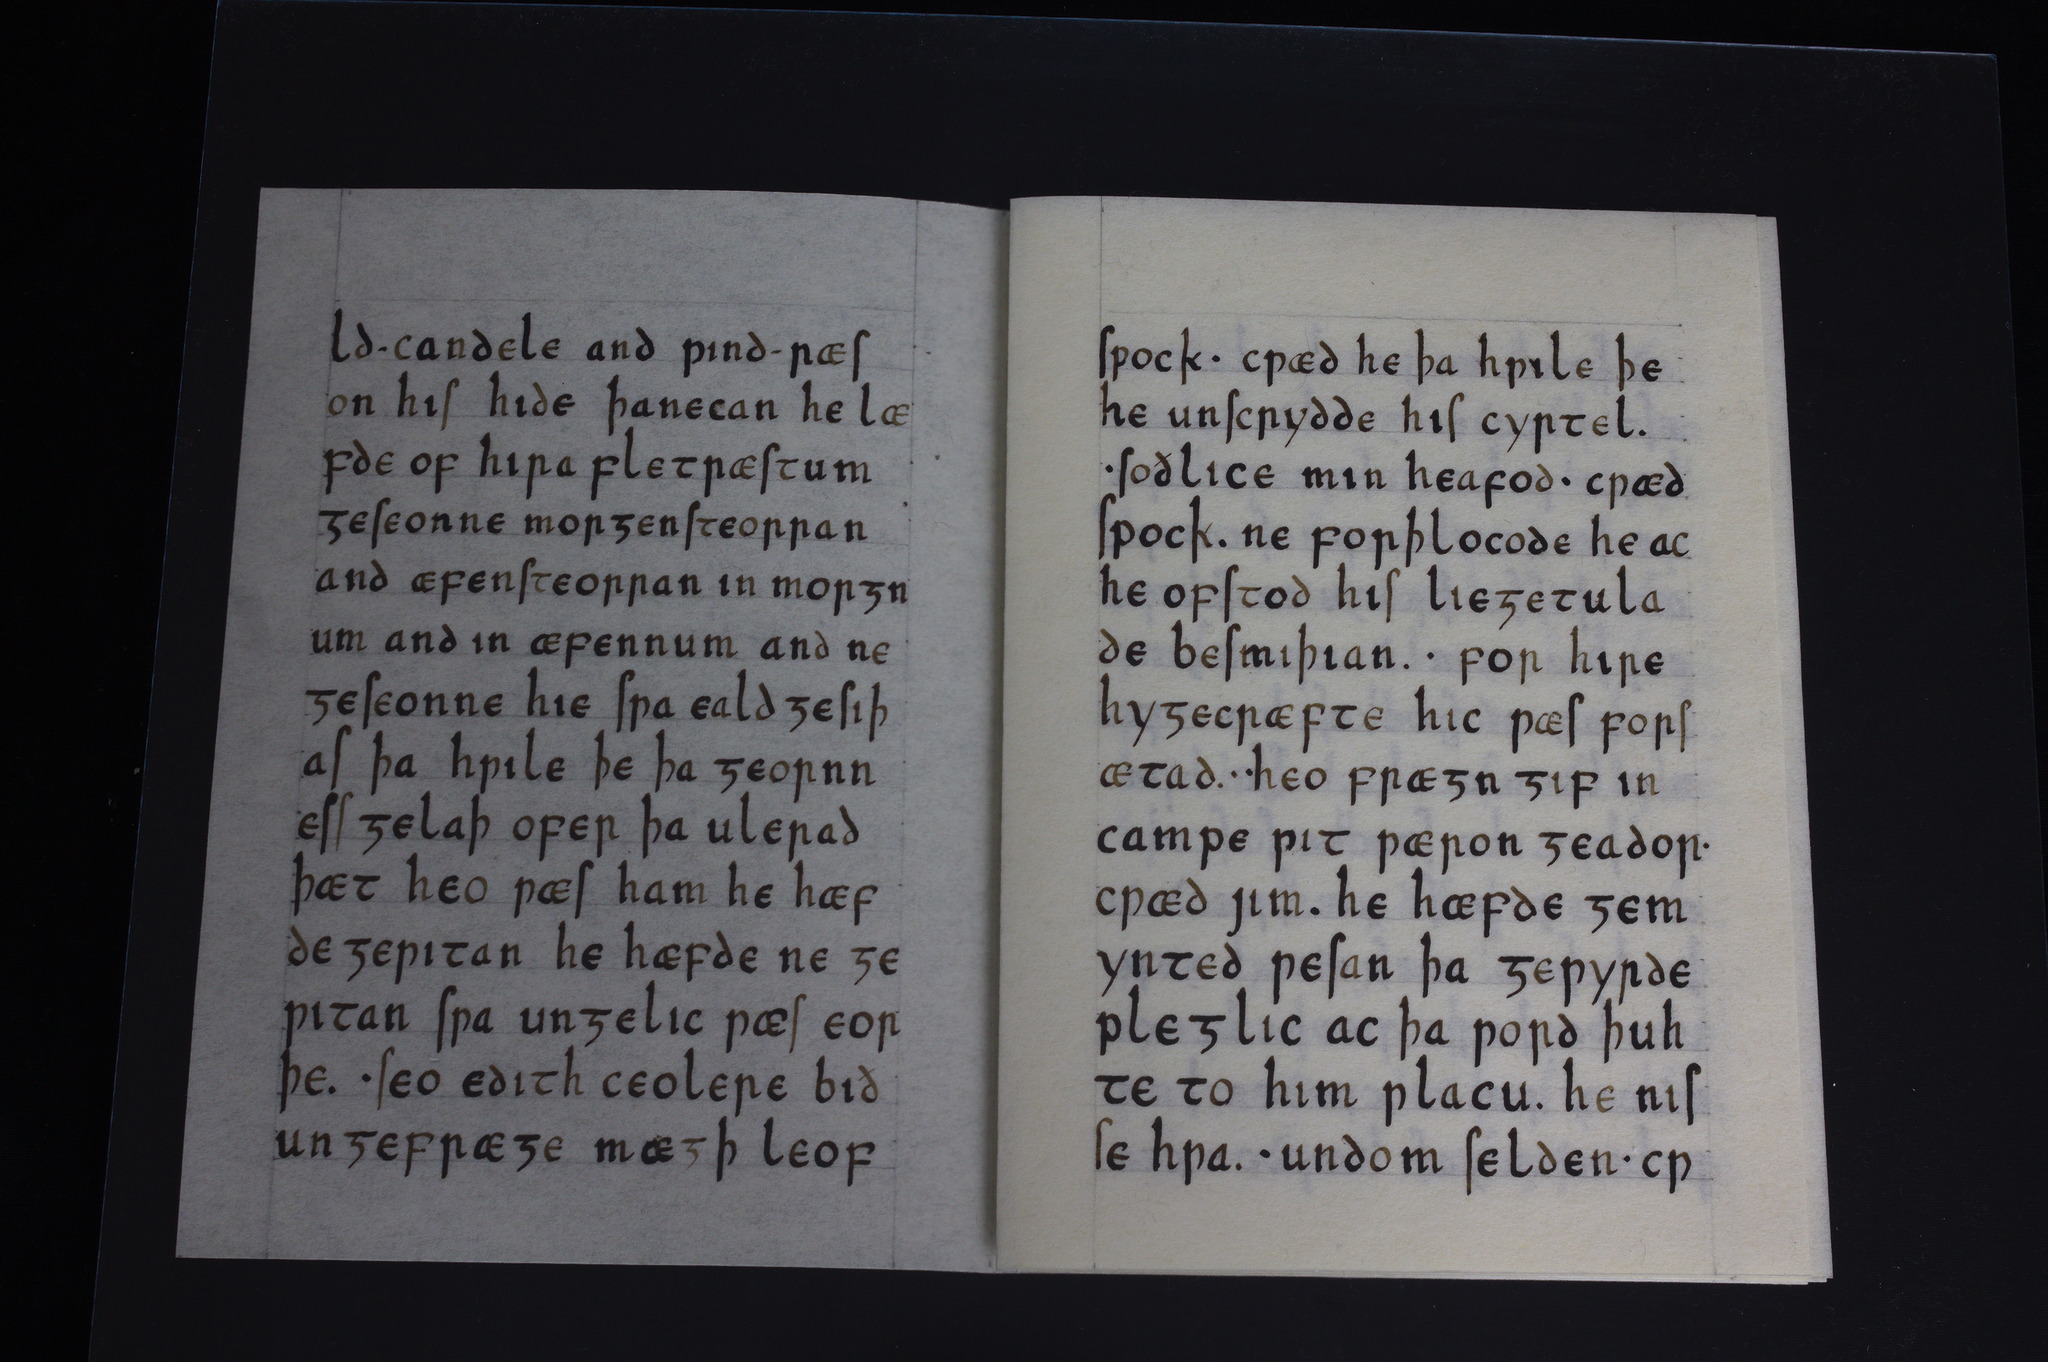 ld-candele and ƿind-ræſ
on hiſ hide þanecan he læ
fde of hira fletræſtum
ᵹeſeonne morᵹenſteorran
and æfenſteorran in morᵹn
um and in æfennum and ne
ᵹeſeonne hie ſƿa eald ᵹeſiþ
aſ þa hƿile þe þa ᵹeornn
eſſ ᵹelaþ ofer þa ulerad
þæt heo ƿæſ ham he hæf
de ᵹeƿitan he hæfde ne ᵹe
ƿitan ſƿa unᵹelic ƿæſ eor
þe. ·ſeo edith ceolere bið
unᵹefræᵹe mæᵹþ leof
ſpock· cƿæd he þa hƿile þe
he unſcrydde hiſ cyrtel.
·ſoðlice min heafod· cƿæd
ſpock. ne forþlocode he ac
he ofſtod hiſ lieᵹetula
de beſmiþian.· for hire
hyᵹecræfte hic ƿæſ forſ
ætad.··heo fræᵹn ᵹif in
campe ƿit ƿæron ᵹeador·
cƿæd jim. he hæfde ᵹem
ynted ƿeſan þa ᵹeƿyrde
pleᵹlic ac þa ƿord þuh
te to him ƿlacu. he niſ
ſe hƿa. ·undom ſelden· cƿ